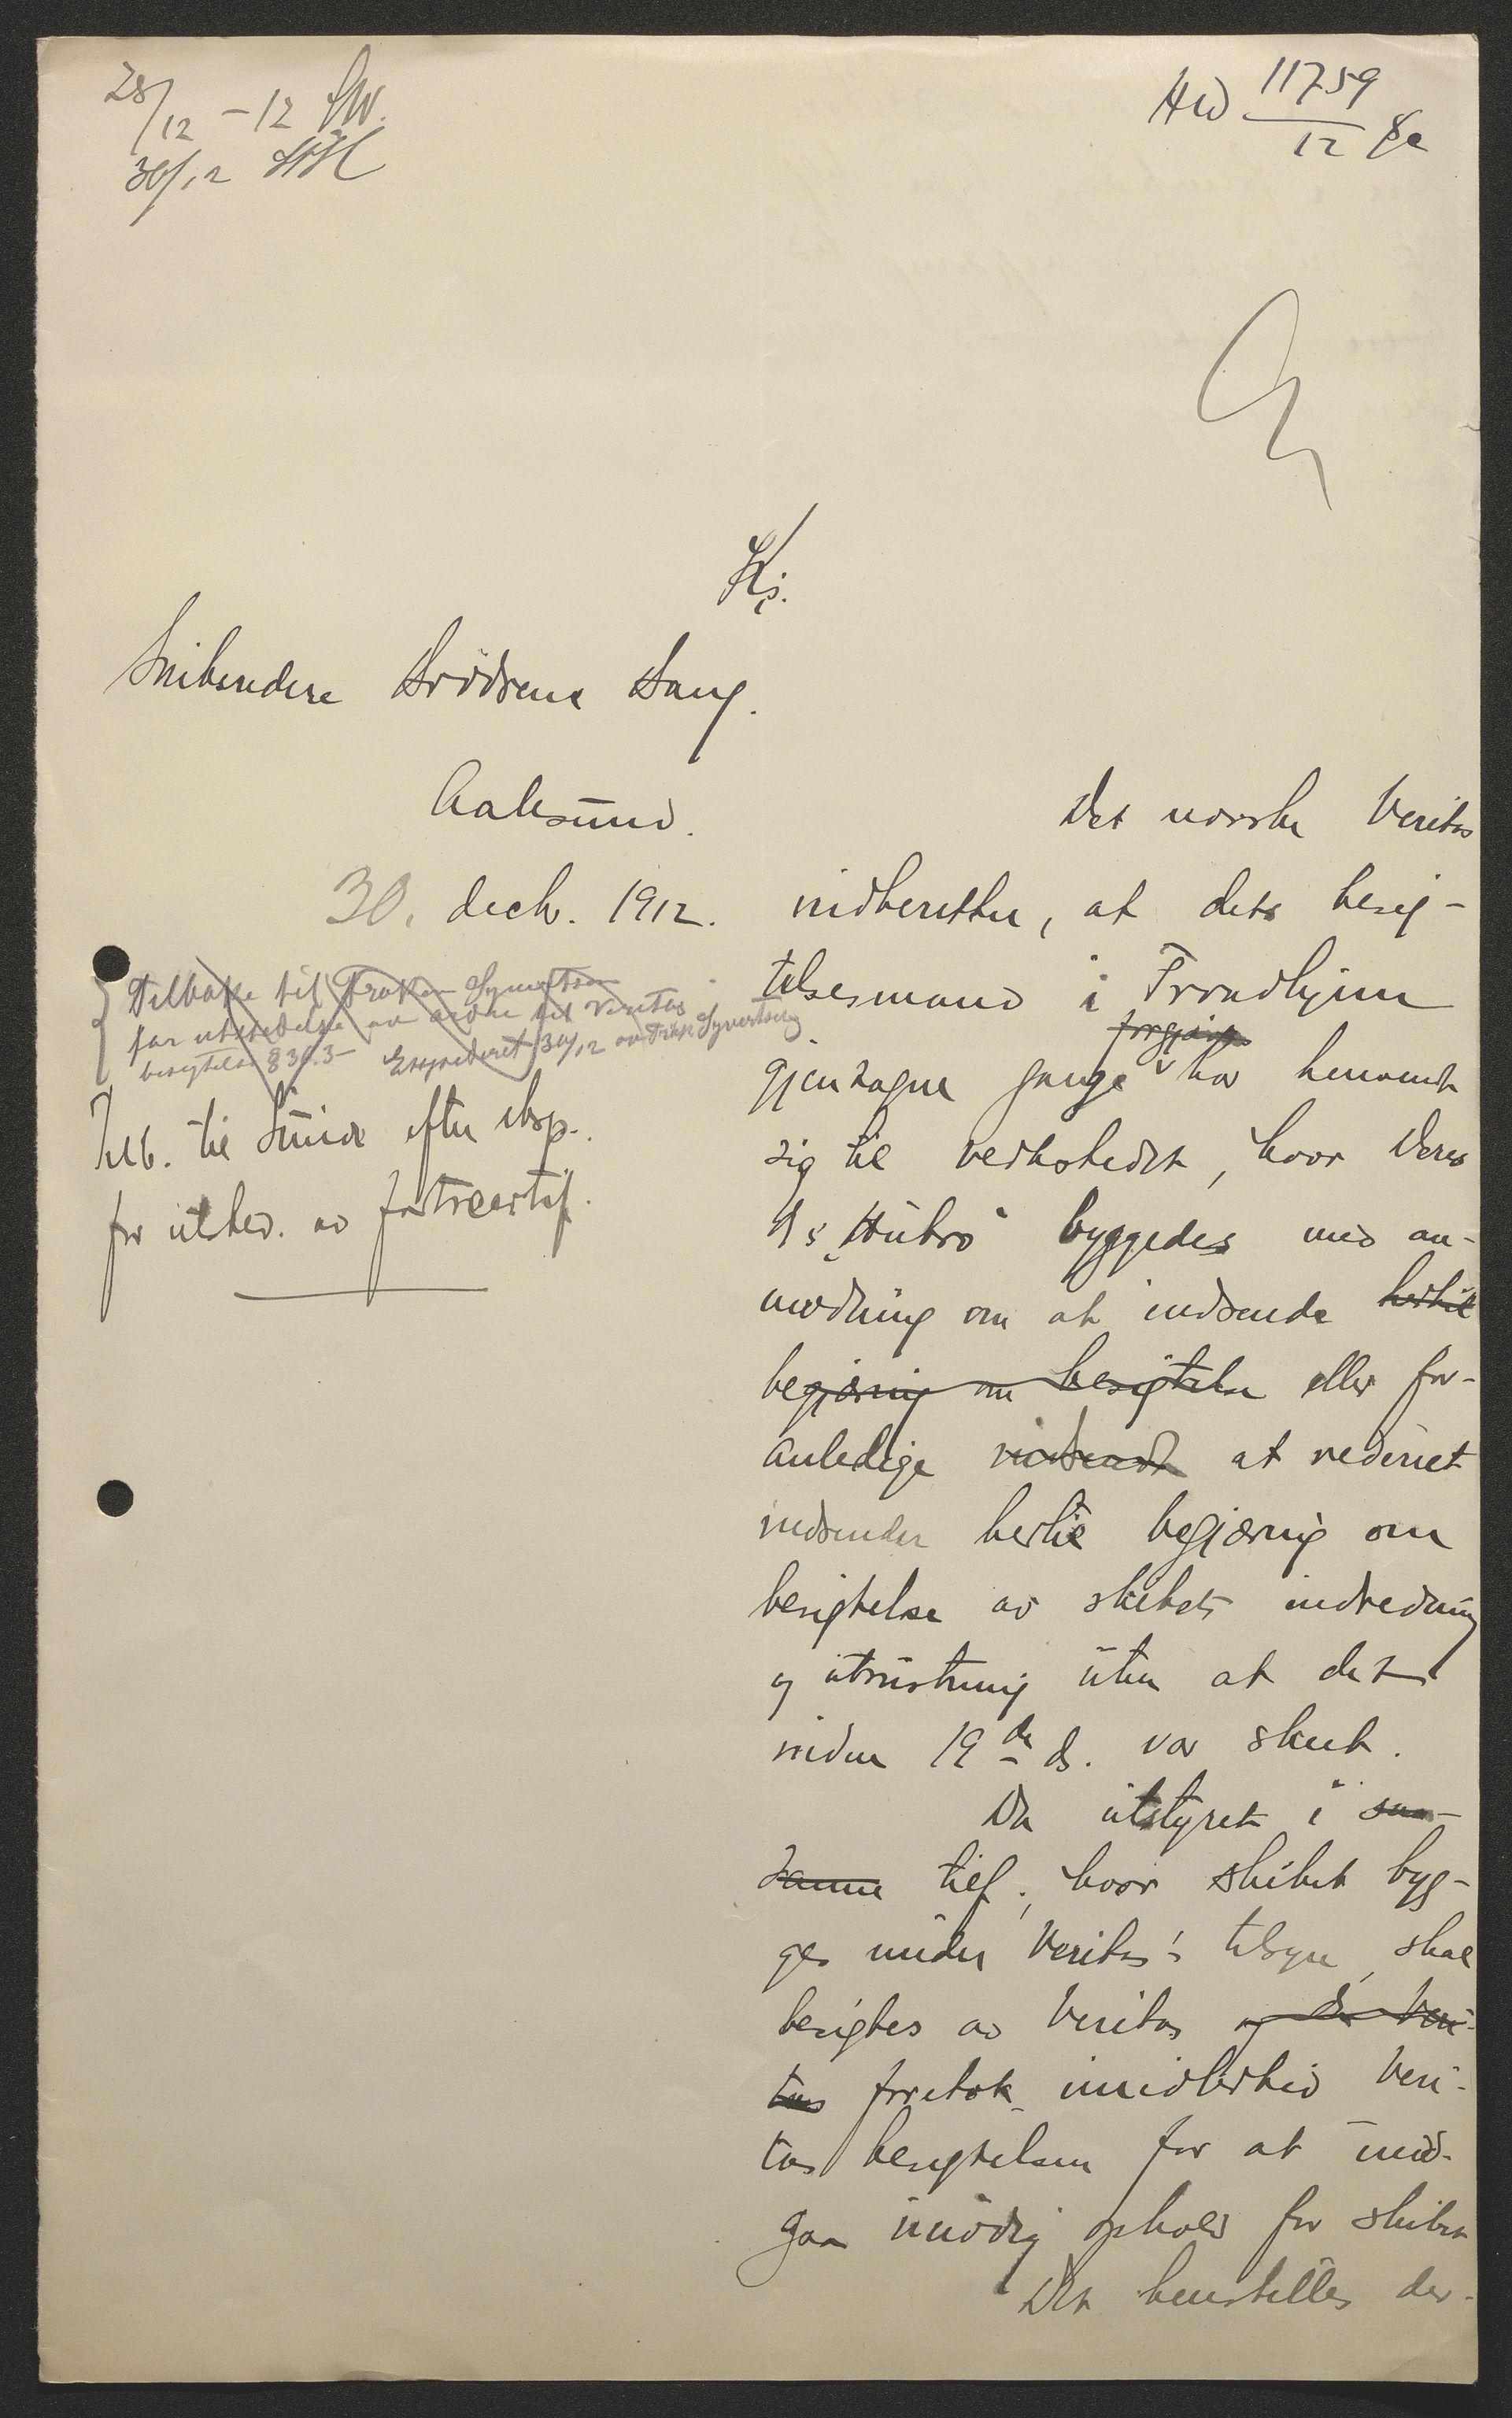 28/12 - 12 SW.
30/12
HD 11759
12
Kj.
Skibsredere Brödrene Bang.
Aalesund.
30. decb. 1912.
Tilbake til Frøken Syvertsen
for utstedelse av ordre til Veritas
besigtelse § 36.3 - Expederet 30/12 av Frk. Syvertsen
Tilb. til Smidt efter eksp.
for utsted. av fartscertif.
Det norske Veritas
indberetter, at dets besig-
telsesmand i Trondhjem
forgjæves
gjentagne gange har henvendt
sig til verkstedet, hvor Deres
ds „Hubro" bygges med an-
modning om at indsende hertil
begjæring om besigtelse eller for-
anledige indsendt at rederiet
indsender hertil begjæring om
besigtelse av skibets indredning
og utrustning uten at det
inden 19de ds. var skeet.
Da utstyret i saa-
danne tilf., hvor skibet byg-
ges under Veritas's tilsyn, skal
besigtes av Veritas og da Veri-
tas foretok imidlertid Veri-
tas besigtelsen for at und-
gaa unödig ophold for skibet
Det henstilles der-